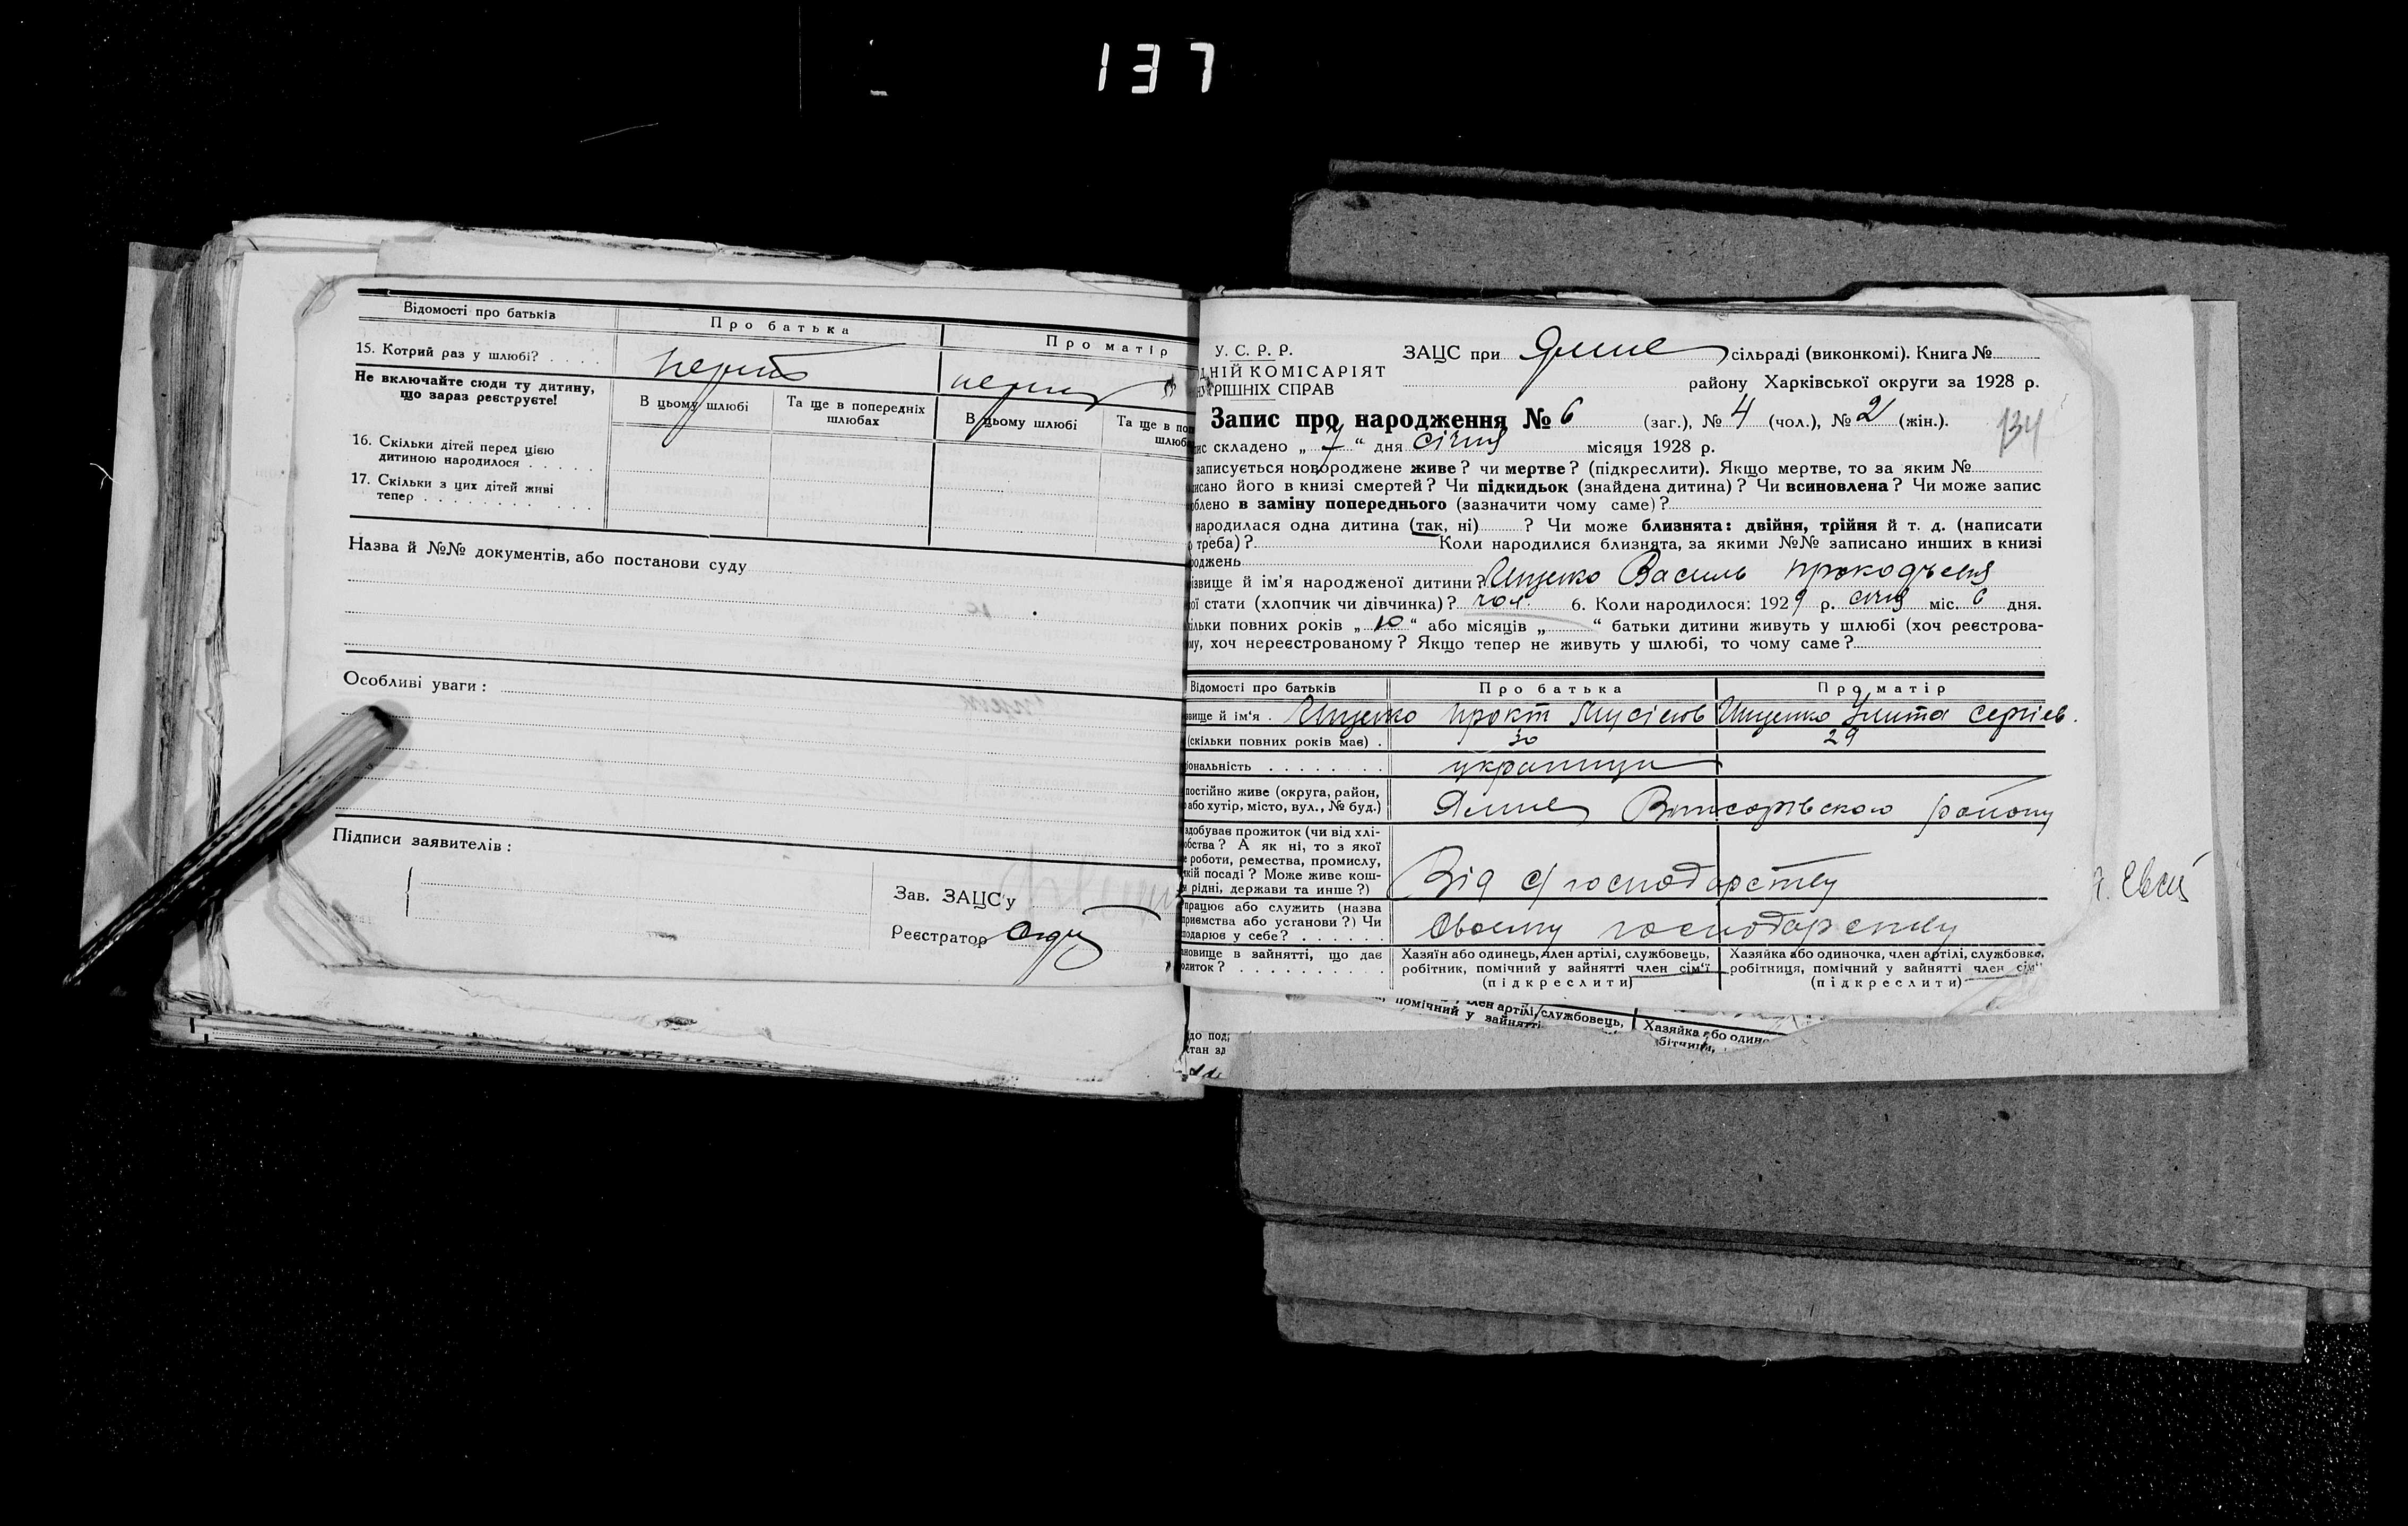 137
Відомості про батьків
Про батька
Про матір
15. Котрий раз у шлюбі? . . . .
Не включайте сюди ту дитину,
що зараз реєструєте!
В цьому шлюбі
Та ще в попередніх
шлюбах
В цьому шлюбі
Та ще в поп
шлюб
16. Скільки дітей перед цією
дитиною народилося . . . . .
17. Скільки з цих дітей живі
тепер . . . . . . . . . . .
Назва й №№ документів, або постанови суду
Особливі уваги :
Підписи заявителів :
Зав. ЗАЦС'у
Реєстратор
У. С. Р. Р.
ДНІЙ КОМІСАРІЯТ
РІШНІХ СПРАВ
ЗАЦС при сільраді (виконкомі). Книга №
району Харківської округи за 1928 р.
Запис про народження № 6 (заг.), № 4 (чол.), № 2 (жін.).
134
ис складено „ 7 “ дня січня місяця 1928 р.
записується новороджене живе? чи мертве? (підкреслити). Якщо мертве, то за яким №
исано його в книзі смертей? Чи підкидьок (знайдена дитина)? Чи всиновлена? Чи може запис
облено в заміну попереднього (зазначити чому саме)?
народилася одна дитина (так, ні) ? Чи може близнята: двійня, трійня й т. д. (написати
треба)? Коли народилися близнята, за якими №№ записано инших в книзі
роджень
ізвище й ім'я народженої дитини? Іщенко Василь
ої стати (хлопчик чи дівчинка)? чол. 6. Коли народилося: 1929 р. січня міс. 6 дня.
ільки повних років „ 10 “ або місяців „ “ батьки дитини живуть у шлюбі (хоч реєстрова-
му, хоч нереєстрованому? Якщо тепер не живуть у шлюбі, то чому саме?
Відомості про батьків
Про батька
Про матір
вище й ім'я . Іщенко Іщенко Сергієв.
(скільки повних років має) . 30 29
іональність . . . . . . . українці
постійно живе (округа, район,
або хутір, місто, вул., № буд.)
району
здобуває прожиток (чи від хлі-
обства? А як ні, то з якої
е роботи, ремества, промислу,
якій посаді? Може живе кош-
и рідні, держави та инше?)
Від с/господарству
працює або служить (назва
приємства або установи?) Чи
подарює у себе? . . . . . .
Своєму господарству
ановище в зайнятті, що дає
житок? . . . . . . . . . .
Хазяїн або одинець, член артілі, службовець,
робітник, помічний у зайнятті член сім'ї
(підкреслити)
Хазяйка або одиночка, член артілі, службовка,
робітниця, помічний у зайнятті член сім'
(підкреслити)
помічний у зайнятті
член артілі, службовець,
Хазяйка або одино
до под
стан зд